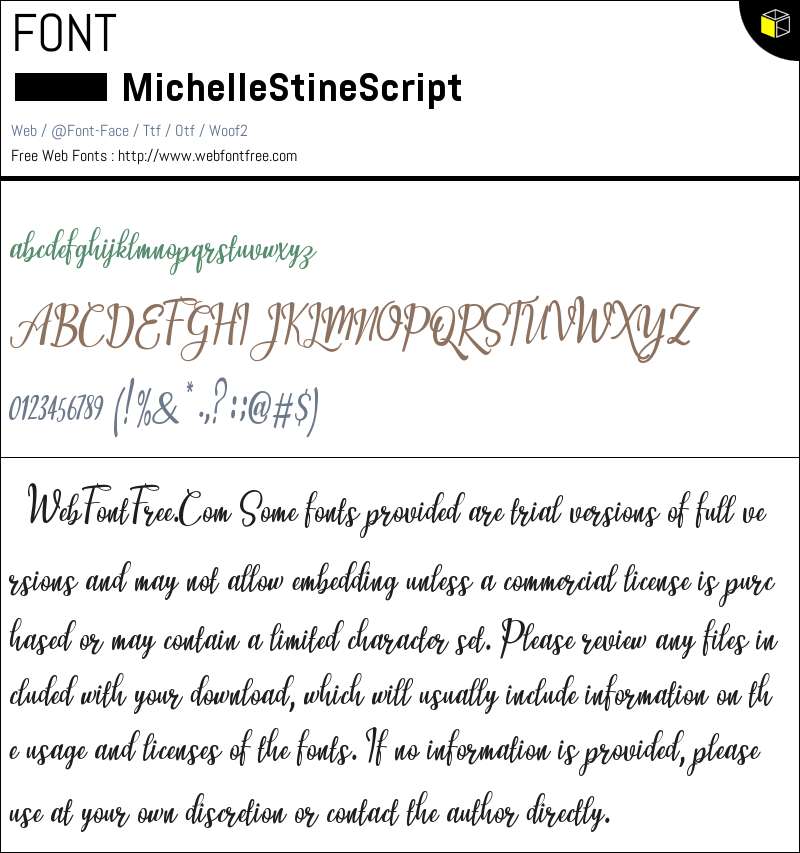 FONT
MichelleStineScript
Web / @Font-Face / Ttf / Otf / Woof2
Free Web Fonts : http://www.webfontfree.com
abcdefghijklmnopqrstuvwxyz
ABCDEFGHIJKLMNOPQRSTUVWXYZ
0123456789 (!%&*.,?:;@#$)
WebFontFree.Com Some fonts provided are trial versions of full ve
rsions and may not allow embedding unless a commercial license is purc
hased or may contain a limited character set. Please review any files in
cluded with your download, which will usually include information on th
e usage and licenses of the fonts. If no information is provided, please
use at your own discretion or contact the author directly.